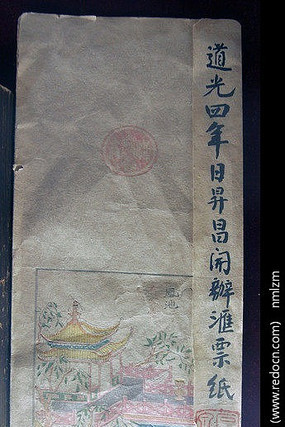 道光四年日昇昌開辦滙票紙
鳳池
(www.redocn.com) nmlzm